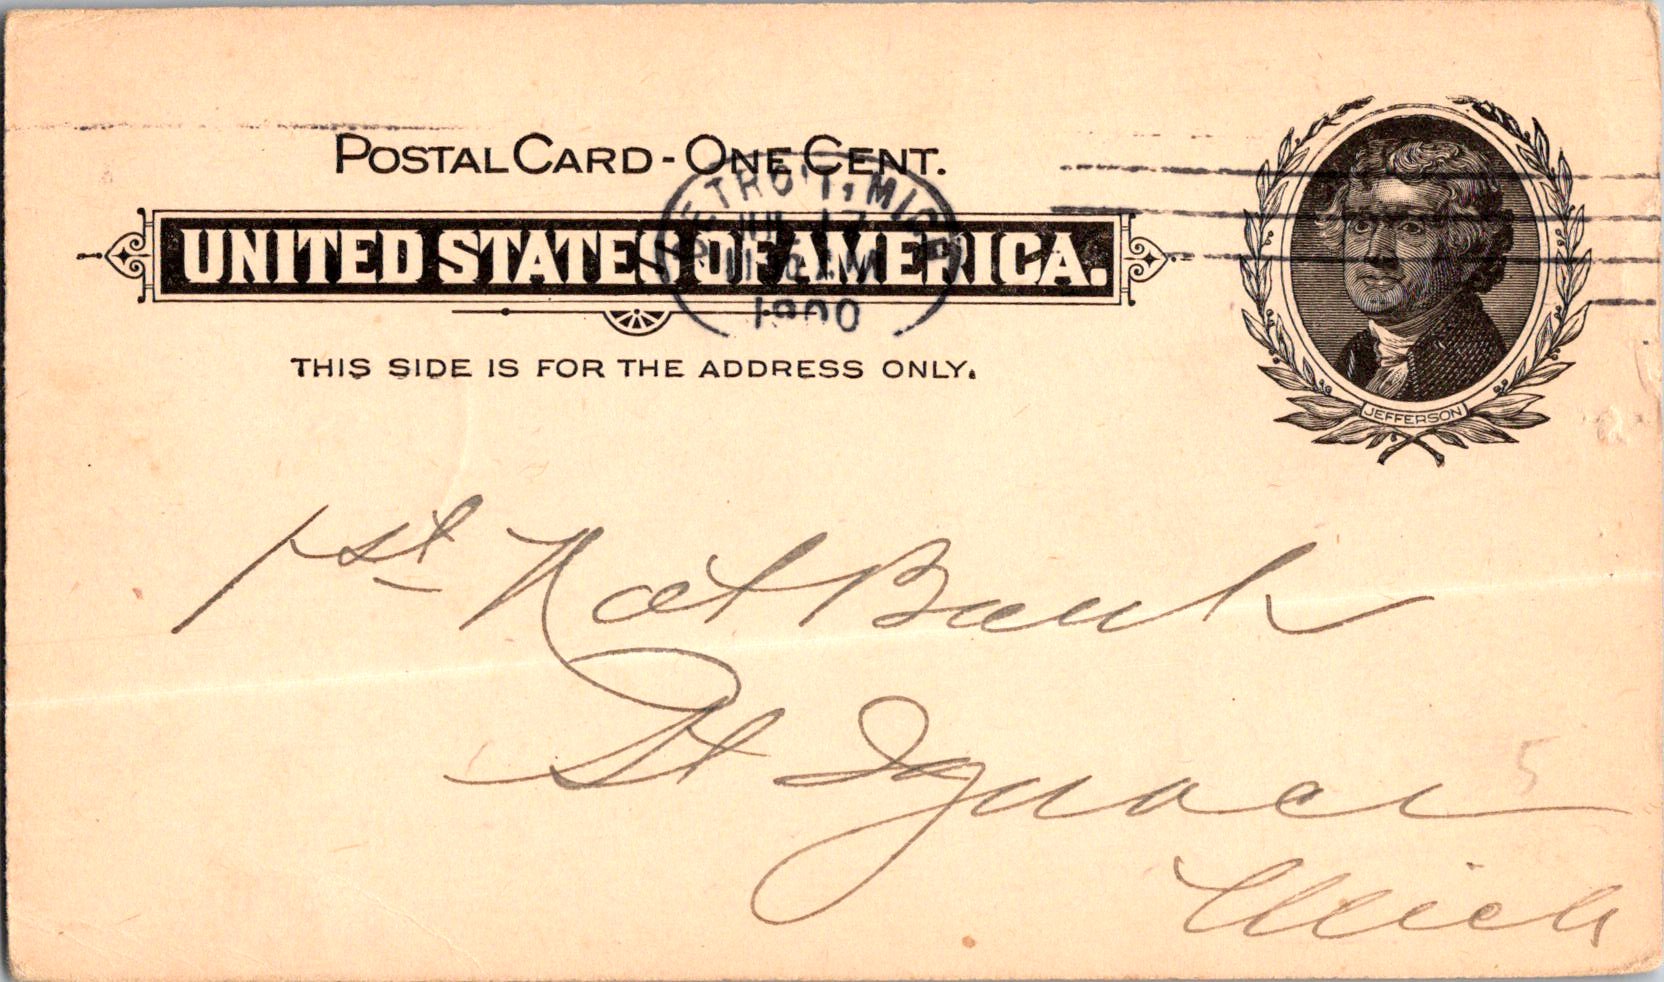 POSTAL CARD - ONE CENT.
UNITED STATES OF AMERICA.
THIS SIDE IS FOR THE ADDRESS ONLY.
DETROIT, MICH.
17
1900
JEFFERSON
1st Nat Bank
St Ignace
Mich
5